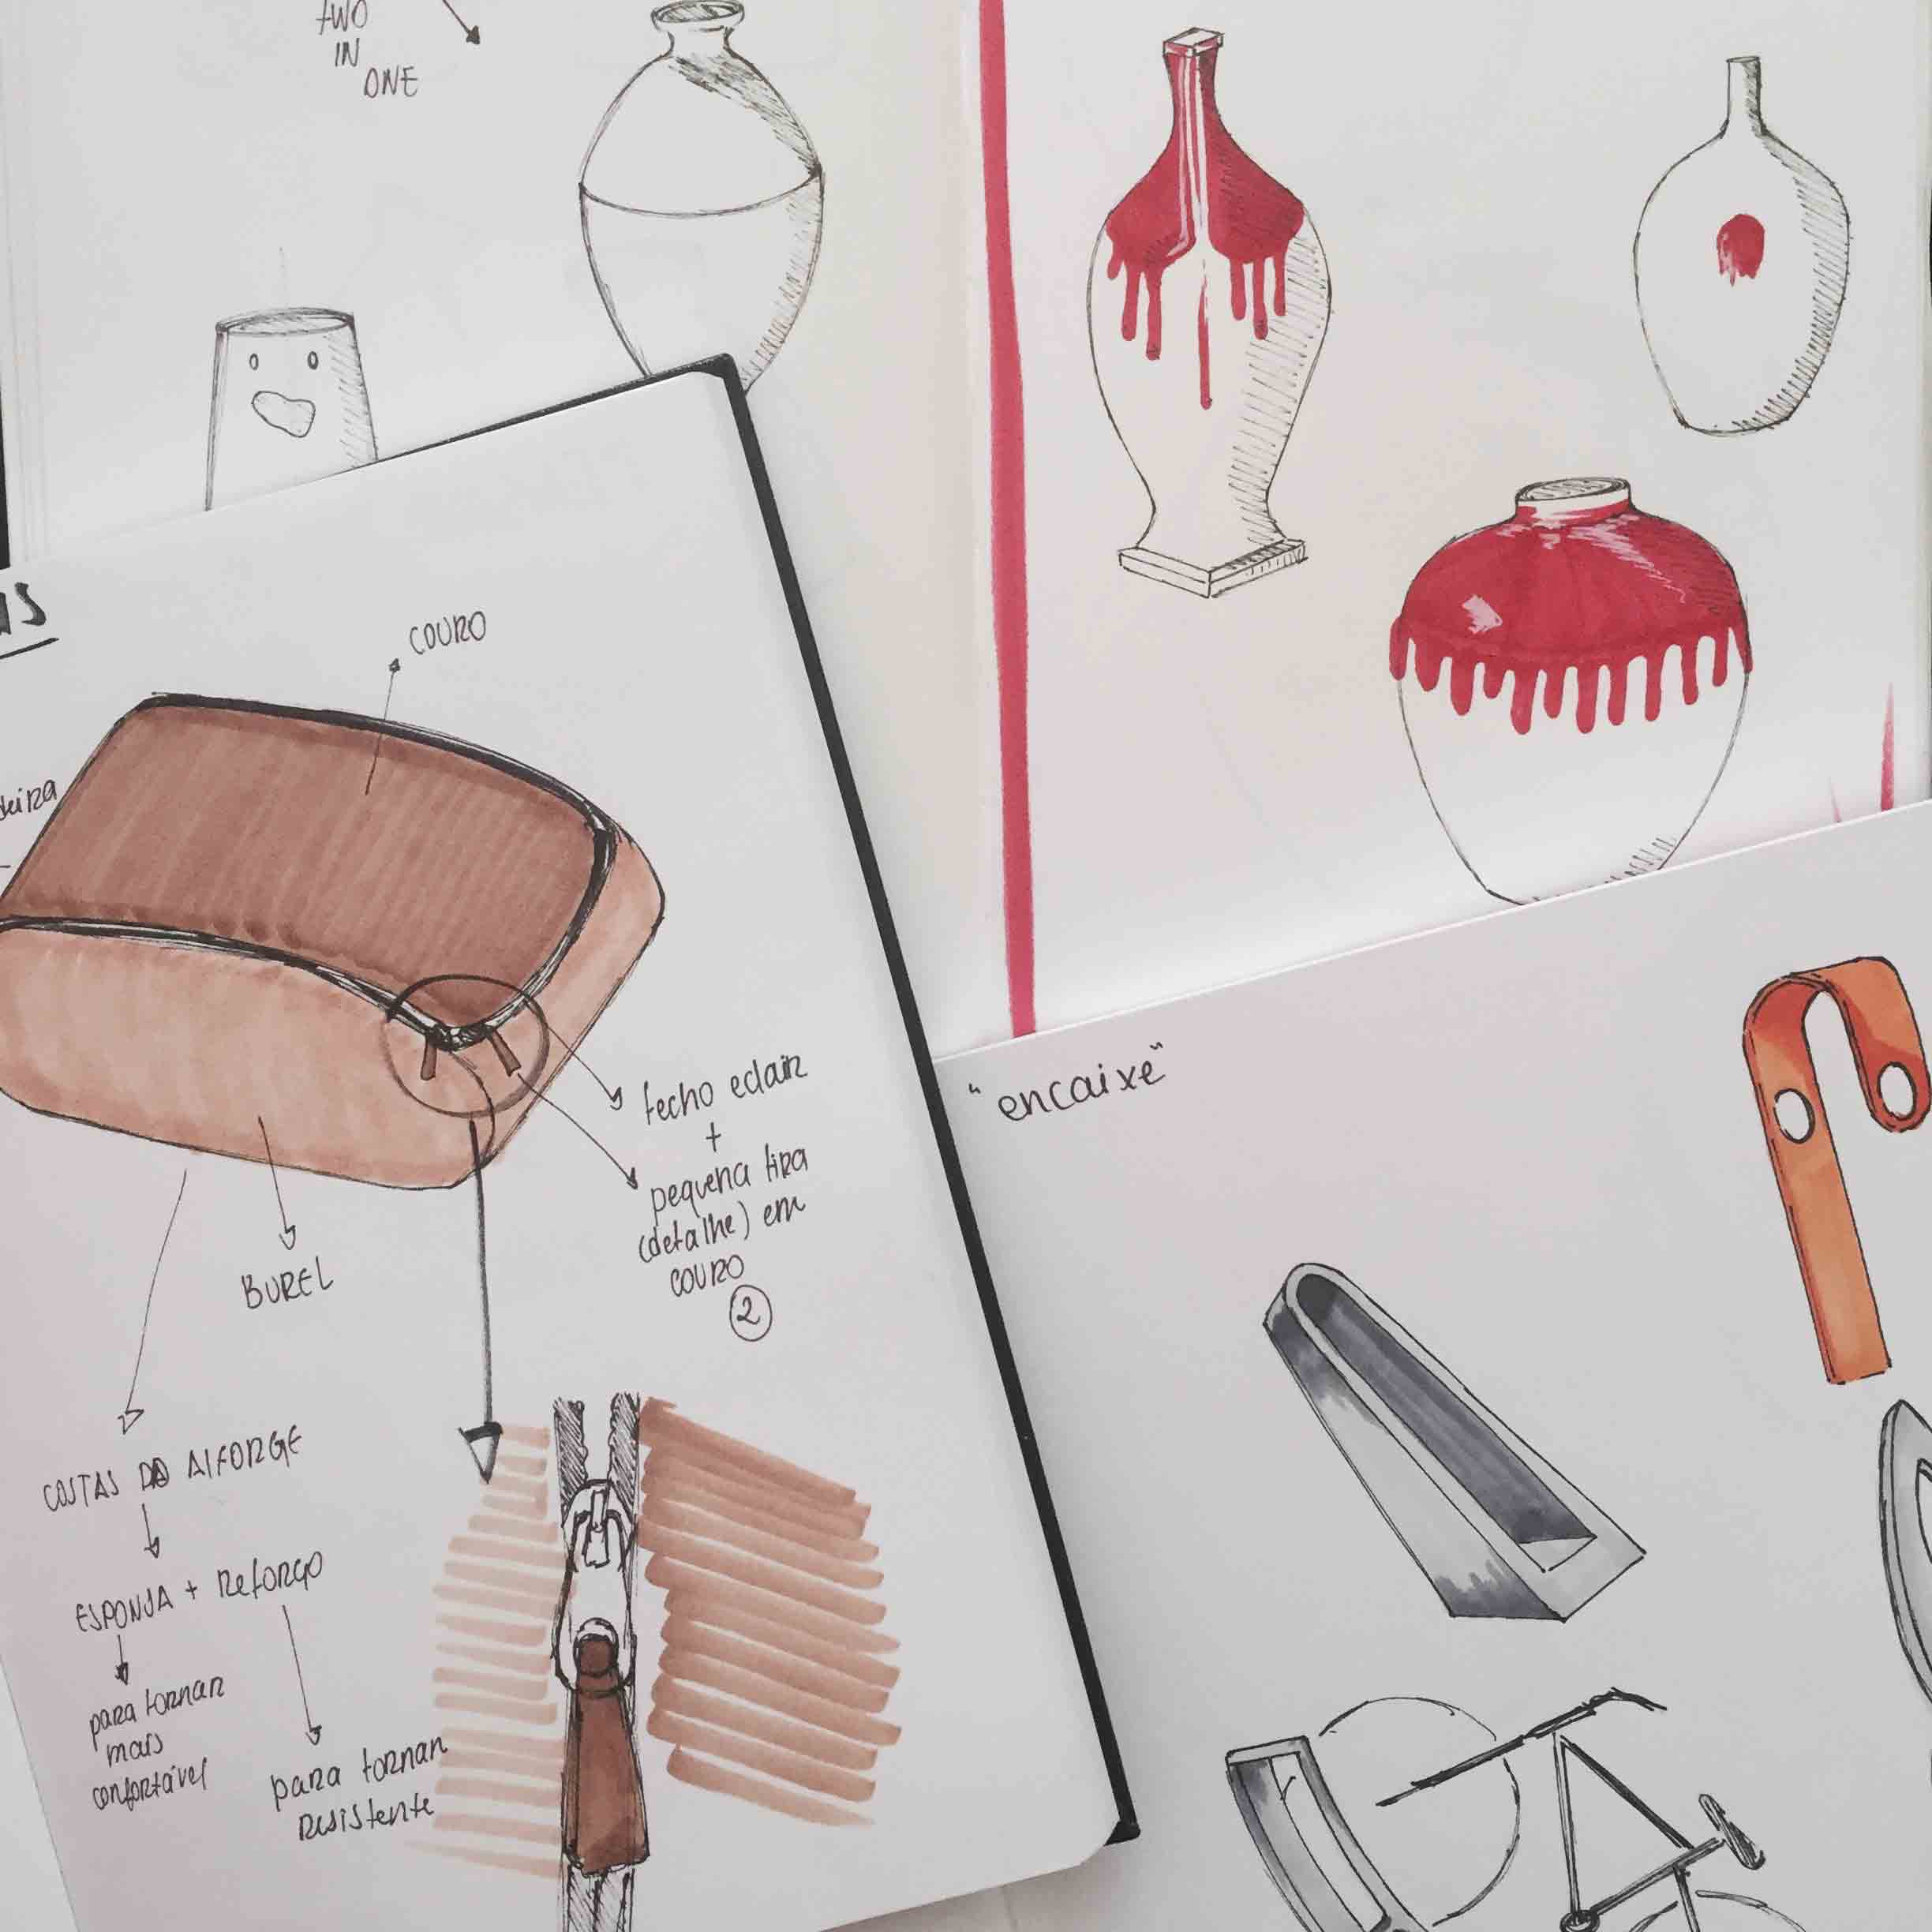 TWO
IN
ONE
COURO
fecho eclair
+
pequena tira
(detalhe) em
COURO
2
BUREL
COSTAS DO ALFORGE
ESPONJA + REFORÇO
para tornar
mais
confortável
para tornar
resistente
"encaixe"